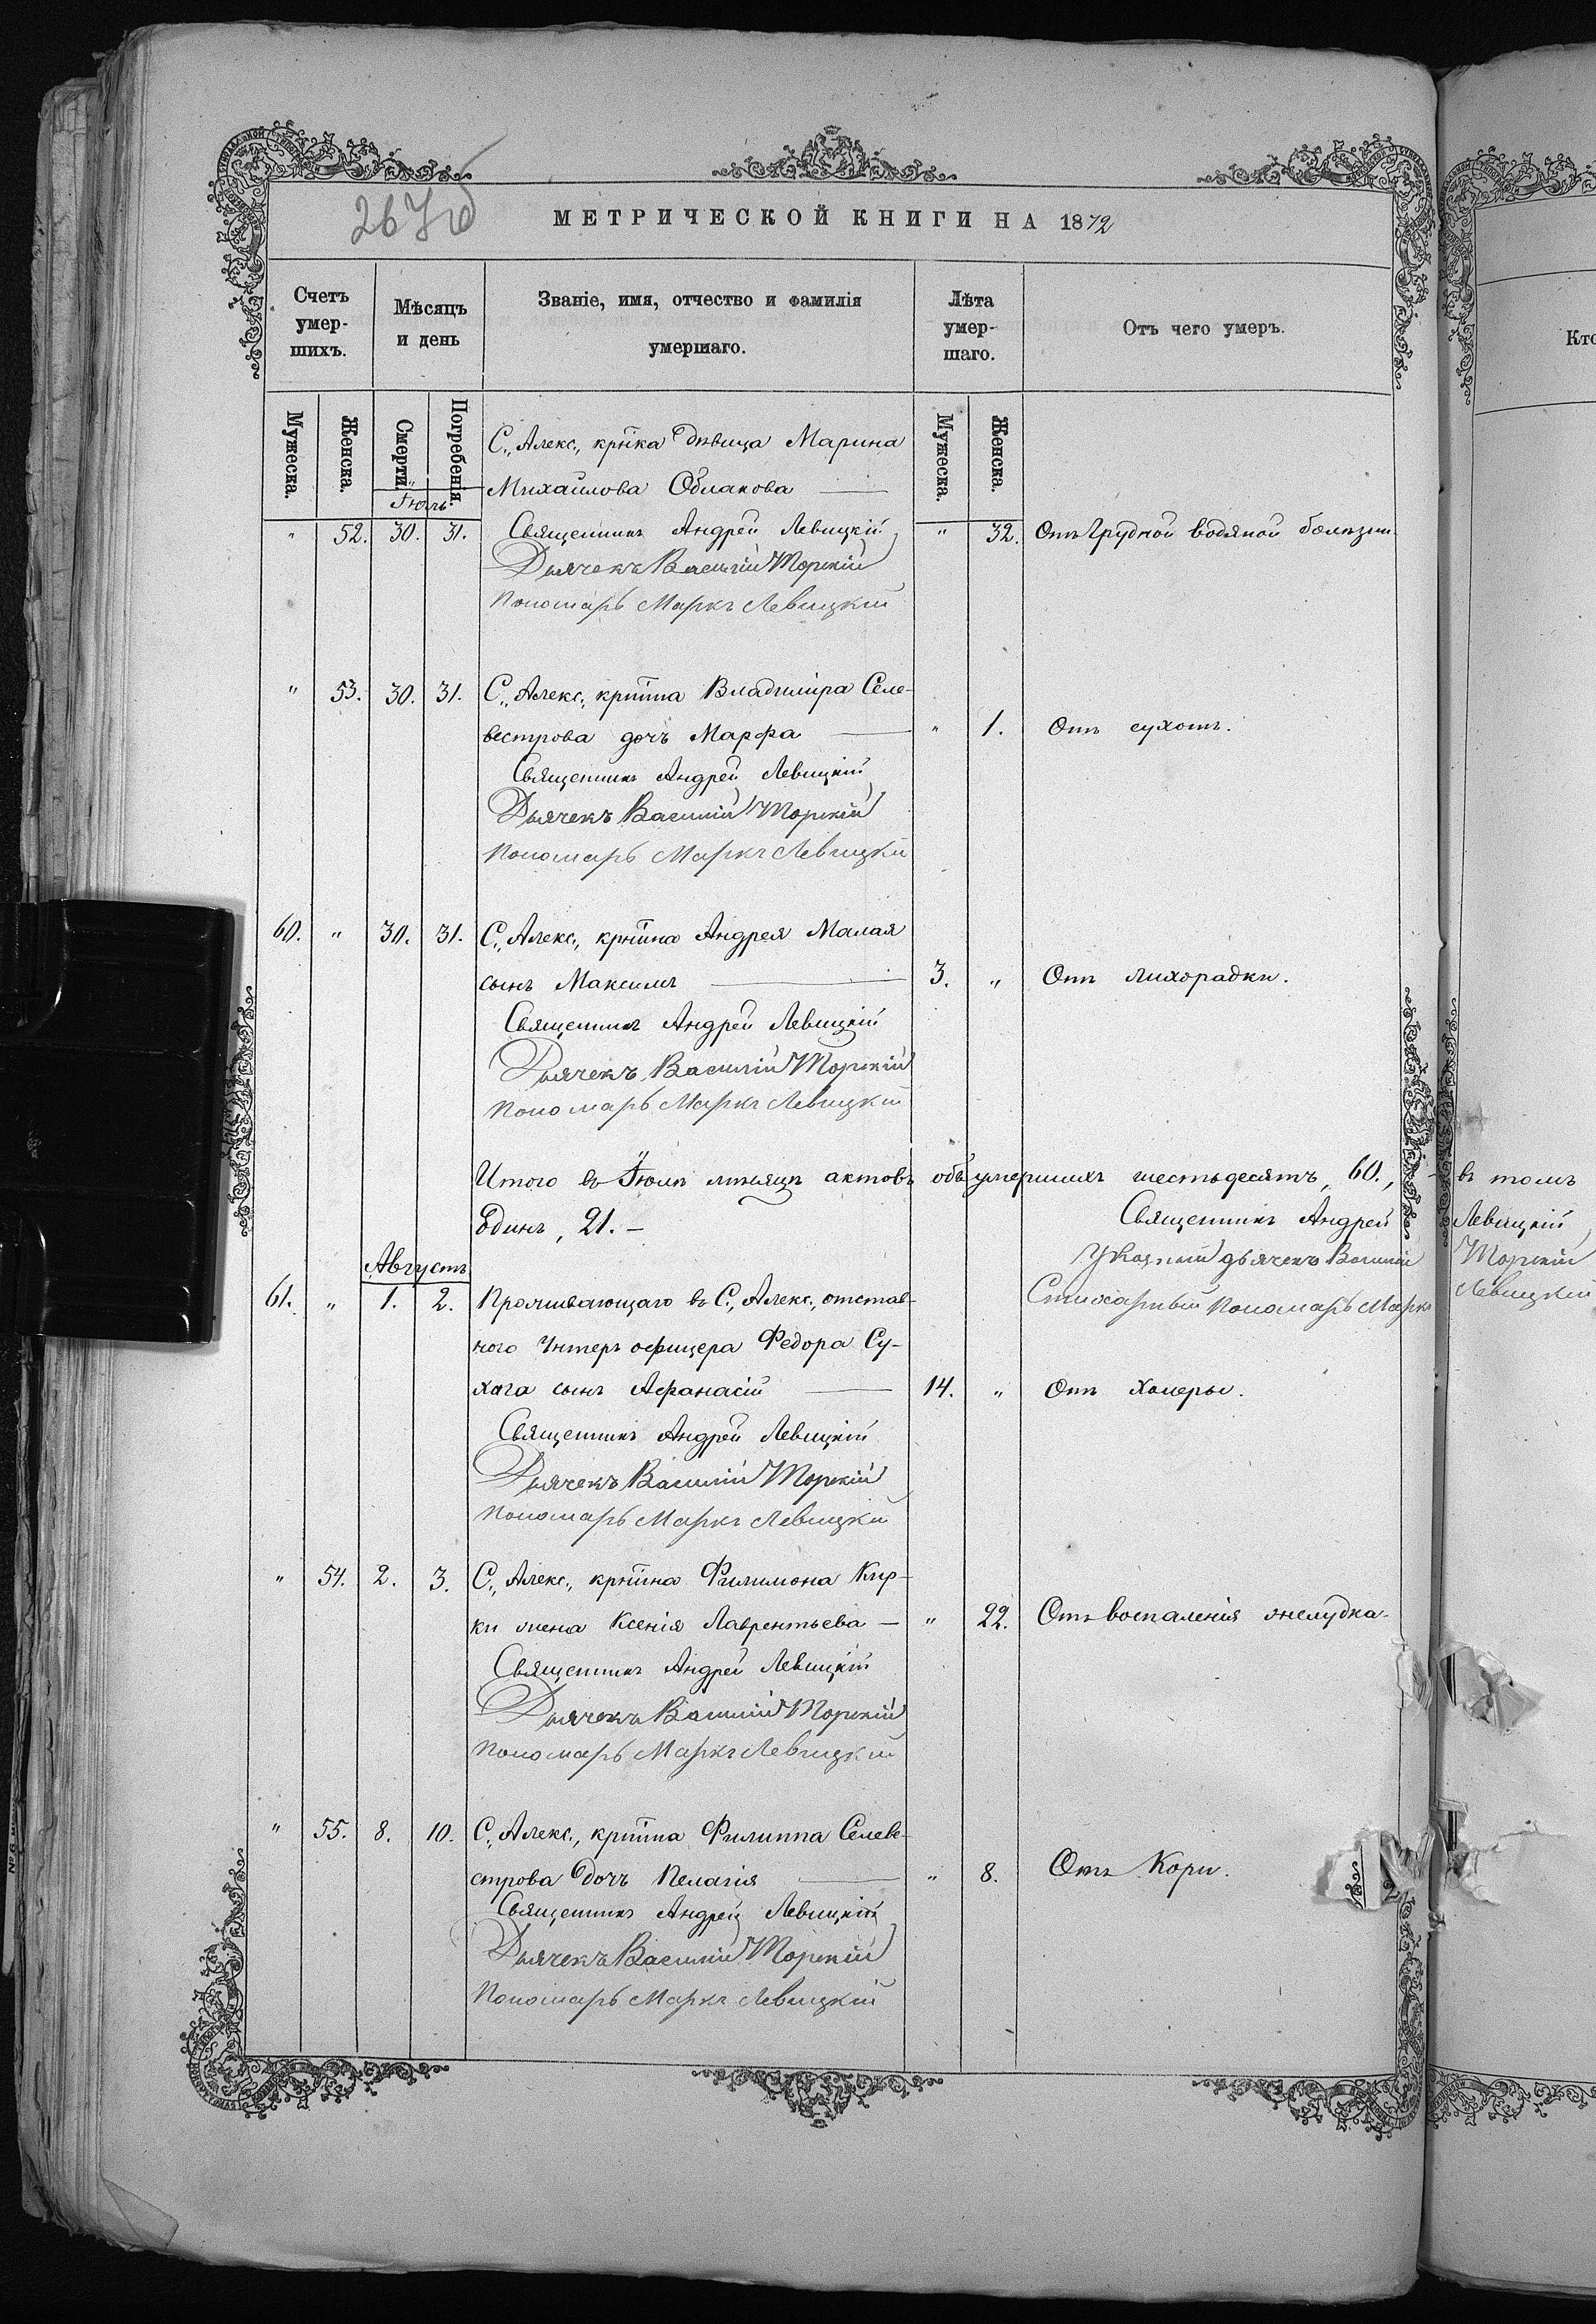 267 об
МЕТРИЧЕСКОЙ КНИГИ НА 1872
Счетъ умер-шихъ. Мѣсяцъ и день Званіе, имя, отчество и фамилія умершаго. Лѣта умер-шаго. Отъ чего умеръ.
Мужеска. Женска. Смерти. Погребенія. Мужеска. Женска.
С., Алекс., кр҃нка дѣвица Марина
Михаилова Облакова
Іюль
" 52. 30. 31. Священникъ Андрей Левицкій " 32. Отъ Грудной водяной болѣзни.
Дьячекъ Василій Торскій
Пономарь Маркъ Левицкій
" 53. 30. 31. С., Алекс., кр҃нина Владиміра Селе-
вестрова дочь Марфа " 1. Отъ сухотъ.
Священникъ Андрей Левицкій
Дьячекъ Василій Торскій
Пономарь Маркъ Левицкій
60. " 30. 31. С., Алекс., кр҃нина Андрея Малая
сынъ Максимъ 3. " Отъ лихорадки.
Священникъ Андрей Левицкій
Дьячекъ Василій Торскій
Пономарь Маркъ Левицкій
Итого въ Іюлѣ мѣсяцѣ актовъ объ умершихъ шестьдесятъ, 60., - въ томъ
Одинъ, 21. –
Священникъ Андрей Левицкій
Указный дьячекъ Василій Торскій
Стихарный Пономарь Маркъ Левицкій
Августъ
61. " 1. 2. Проживающаго въ С., Алекс., отстав-
ного Унтеръ офицера Федора Су-
хага сынъ Афанасій 14. " Отъ холеры.
Священникъ Андрей Левицкій
Дьячекъ Василій Торскій
Пономарь Маркъ Левицкій
" 54. 2. 3. С., Алекс., кр҃нина Филимона Кир-
ки жена Ксенія Лаврентьева — " 22. Отъ воспаленія желудка.
Священникъ Андрей Левицкій
Дьячекъ Василій Торскій
Пономарь Маркъ Левицкій
" 55. 8. 10. С., Алекс., кр҃нина Филиппа Селеве-
строва дочь Пелагія " 8. Отъ Кори.
Священникъ Андрей Левицкій
Дьячекъ Василій Торскій
Пономарь Маркъ Левицкій
Кто